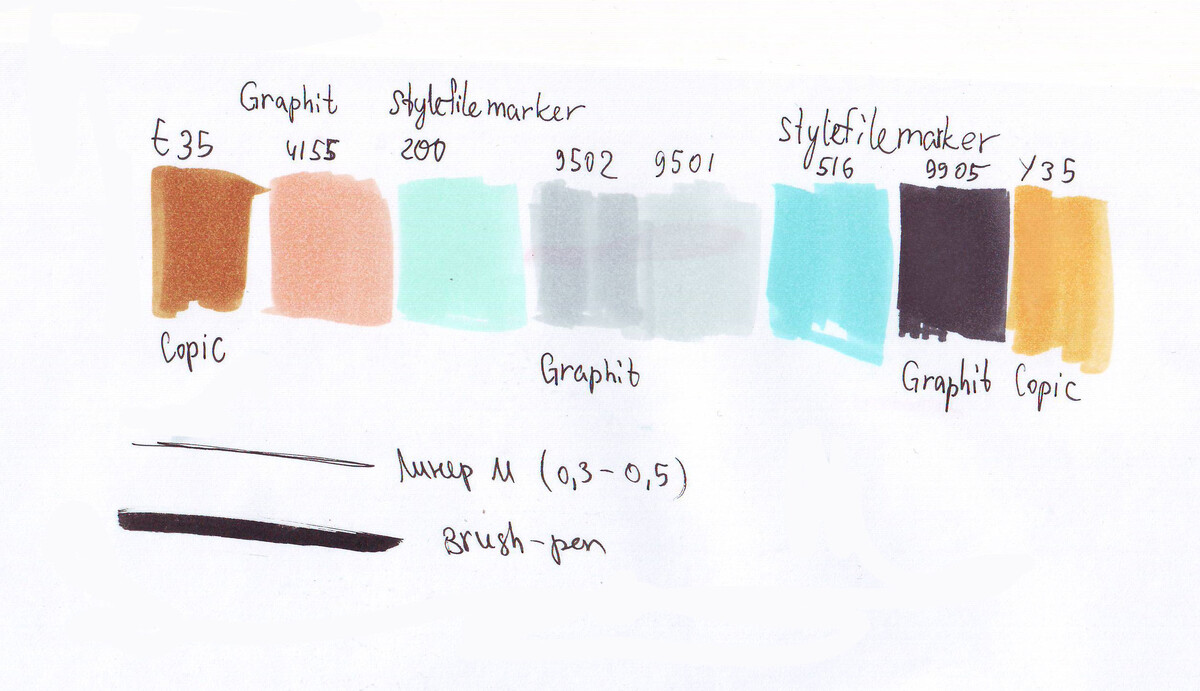 Graphit stylefile marker
E35 4155 200 9502 9501
stylefile marker
516 9905 Y35
Copic Graphit Graphit Copic
Линер М (0,3-0,5)
Brush-pen